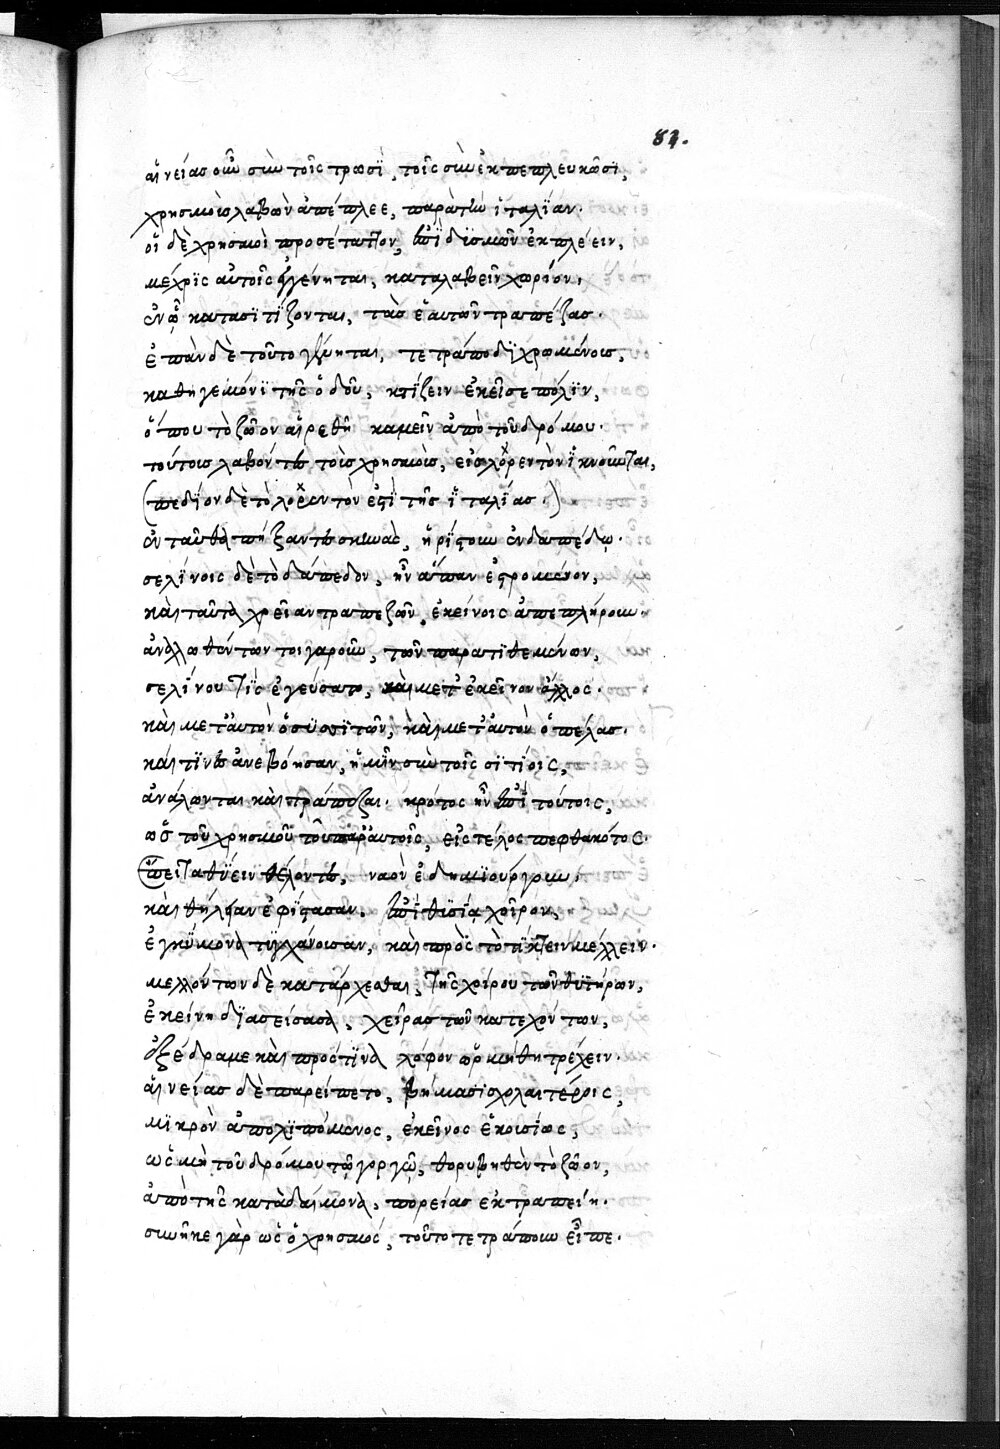 81.
αἰνείας οὖν σὺν τοῖς τρωσὶ, τοῖς σὺν ἐκπεπλευκόσι,
χρησμοὺς λαβὼν ἀπέπλεε, παρὰ τὴν ἰταλίαν.
οἱ δὲ χρησμοὶ προσέταττον, ἐπὶ δϋσμῶν ἐκπλέειν,
μέχρις αὐτοῖς γένηται, καταλαβεῖν χωρίον,
ἐν ᾧ κατασιτίζονται, τὰς ἑαυτῶν τραπέζας.
ἐπὰν δὲ τοῦτο γένηται, τετράποδι χρωμένοις,
καθηγεμόνι τῆς ὁδοῦ, κτίζειν ἐκεῖσε πόλιν,
ὅπου τὸ ζῶον αἱρεθῆ καμεῖν ἀπὸ τοῦ δρόμου.
τούτοις λαβόντες τοῖς χρησμοῖς, εἰς λόρεντον ἱκνοῦνται,
(πεδίον δὲ τὸ λόρεντον ἐστὶ τῆς ἰταλίας.)
ἐνταῦθα πήξαντες σκηνὰς, ἠρίστουν ἐν δαπέδῳ.
σελίνοις δὲ τὸ δάπεδον, ἦν ἅπαν ἐστρωμένον,
καὶ ταῦτα χρείαν τραπεζῶν, ἐκείνοις ἀπεπλήρουν.
ἀναλωθέντων τοιγαροῦν, τῶν παρατιθεμένων,
σελίνου τὶς ἐγεύσατο, καὶ μετ' ἐκεῖνον ἄλλος.
καὶ μετ' αὐτὸν ὁ σϋσσιτῶν, καὶ μετ' αὐτὸν ὁ πέλας.
καί τινες ἀνεβόησαν, ἡμῖν σὺν τοῖς σιτίοις,
ἀνάλωνται καὶ τράπεζαι. κρότος ἦν ἐπὶ τούτοις,
ὡς τοῦ χρησμοῦ τοῦ παρ' αὐτοῖς, εἰς τέλος πεφθακότος.
ἔπειτα θύειν θέλοντες, ναὸν ἐδημιούργουν,
καὶ θήλειαν ἐφίστασαν, ἐπὶ θυσίᾳ χοῖρον,
ἐγκύμονα τυγχάνουσαν, καὶ πρὸς τὸ τίκτειν μέλλειν.
μελλόντων δὲ κατάρχεσθαι, τῆς χοίρου τῶν θυτήρων,
ἐκείνη διασείσασα, χεῖρας τῶν κατεχόντων,
ἐξέδραμε καὶ πρός τινα λόφον ὡρμήθη τρέχειν.
αἰνείας δὲ παρείπετο, βήμασι σχολαιτέροις,
μικρὸν ἀπολιπόμενος, ἐκεῖνος ἑκουσίως,
ὡς μὴ τοῦ δρόμου τῷ γοργῷ, θορυβηθὲν τὸ ζῶον,
ἀπὸ τῆς κατὰ δαίμονα, πορείας ἐκτραπείη.
συνῆκε γὰρ ὡς ὁ χρησμός, τοῦτο τετράπουν εἶπε.